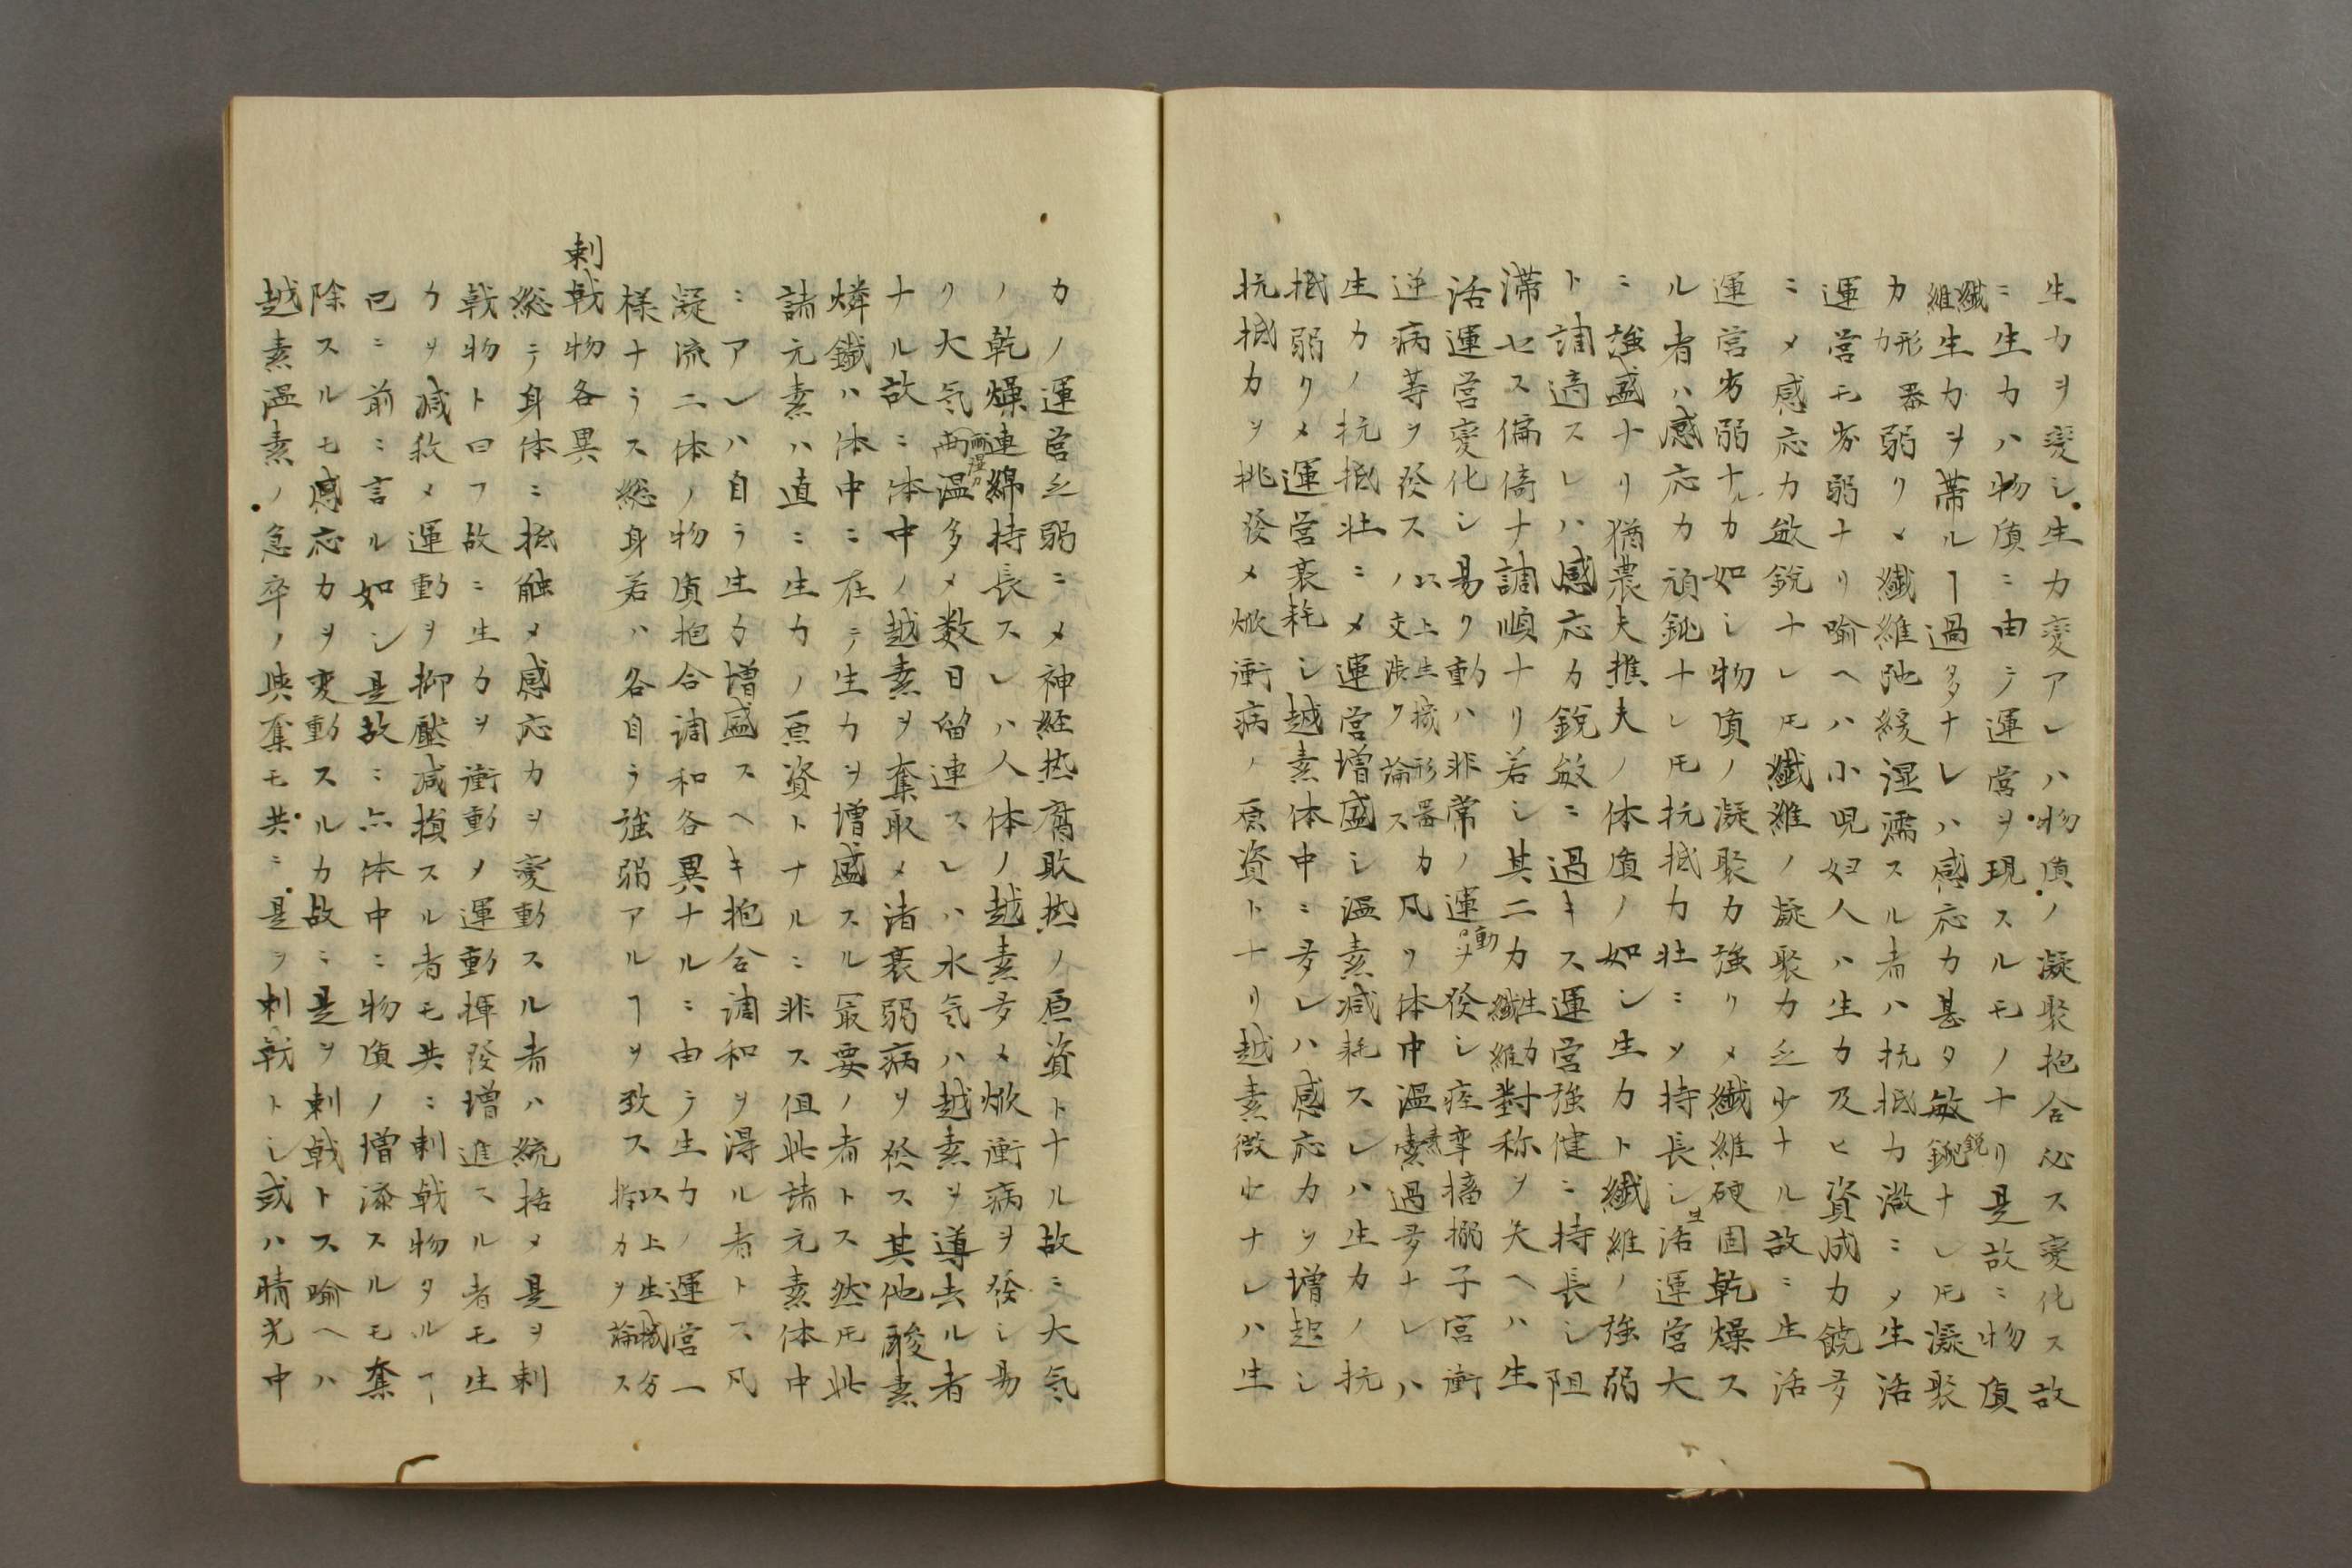 生力ヲ変シ生力変アレハ物質ノ凝聚抱合必ス変化ス故
ニ生力ハ物質ニ由テ運営ヲ現スルモノナリ是故ニ物質
纖維生力ヲ帯ルヿ過多ナレハ感応力甚タ敏鋭ナレ𪜈凝聚
力形器力弱クメ纖維弛緩湿濡スル者ハ抗抵力微ニメ生活
運営モ劣弱ナリ喩ヘハ小児妇人ハ生力及ヒ資成力饒多
ニメ感応力敏鋭ナレ𪜈纖維ノ凝聚力乏少ナル故ニ生活
運営劣弱ナルカ如シ物質ノ凝聚力強クメ纖維硬固乾燥ス
ル者ハ感応力頑鈍ナレ𪜈抗抵力壮ニメ持長シ生活運営大
ニ強盛ナリ猶農夫樵夫ノ体質ノ如シ生力ト纖維ノ強弱
ト調適スレハ感応力鋭敏ニ過キス運営強健ニ持長シ阻
滞セス偏倚ナ調順ナリ若シ其二力生力纖維對称ヲ失ヘハ生
活運営変化シ易ク動ハ非常ノ運動ヲ発シ痙攣搐搦子宮衝
逆病等ヲ発スノ以上生機形器力交渉ク論ス凡ソ体中温素過多ナレハ
生力ノ抗抵壮ニメ運営増盛シ温素減耗スレハ生力ノ抗
抵弱クメ運営衰耗シ越素体中ニ多レハ感応力ヲ増起シ
抗抵力ヲ挑発メ焮衝病ノ原資トナリ越素微少ナレハ生
力ノ運営乏弱ニメ神経热腐敗热ノ原資トナル故ニ大気
ノ乾燥連綿持長スレハ人体ノ越素多メ焮衝病ヲ発シ易
ク大気両温多メ数日留連スレハ水気ハ越素ヲ導去ル者
ナル故ニ体中ノ越素ヲ奪取メ諸衰弱病ヲ発ス其他酸素
燐鐵ハ体中ニ在テ生力ヲ増盛スル冣要ノ者トス然𪜈此
諸元素ハ直ニ生力ノ原資トナルニ非ス但此諸元素体中
ニアレハ自ラ生力増盛スヘキ抱合調和ヲ得ル者トス凡
凝流二体ノ物質抱合調和各異ナルニ由テ生力ノ運営一
様ナラス総身若ハ各自ラ強弱アルヿヲ致ス以上生機分抵力ヲ論ス
刺戟物各異
総テ身体ニ抵触メ感応力ヲ変動スル者ハ統括メ是ヲ刺
戟物ト曰フ故ニ生力ヲ衝動ノ運動揮発増進スル者モ生
力ヲ減殺メ運動ヲ抑壓減損スル者モ共ニ刺戟物タルヿ
已ニ前ニ言ル如シ是故ニ亦体中ニ物質ノ増添スルモ奪
除スルモ感応力ヲ変動スルカ故ニ是ヲ刺戟トス喩ヘハ
越素温素ノ急卒ノ與奪モ共ニ是ヲ刺戟トシ或ハ晴光中